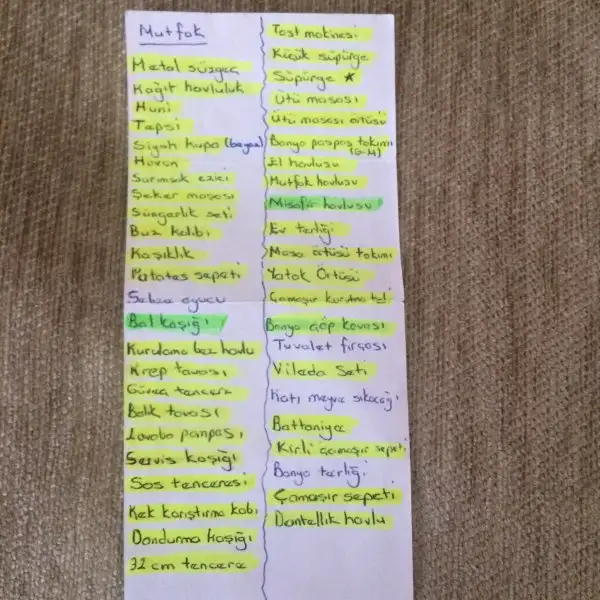 Mutfak
Metal süzgeç
Kağıt havluluk
Huni
Tepsi
Siyah kupa (beyaz)
Havan
Sarımsak ezici
Şeker maşası
Süngerlik seti
Buz kalıbı
Kaşıklık
Patates sepeti
Sebze oyucu
Bal kaşığı
Kurulama bez havlu
Krep tavası
Güveç tencere
Balık tavası
Lavabo pompası
Servis kaşığı
Sos tenceresi
Kek karıştırma kabı
Dondurma kaşığı
32 cm tencere
Tost makinesi
Küçük süpürge
Süpürge ★
Ütü masası
Ütü masası örtüsü
Banyo paspas takımı
(G-M)
El havlusu
Mutfak havlusu
Misafir havlusu
Ev terliği
Masa örtüsü takımı
Yatak Örtüsü
Çamaşır kurutma tel
Banyo Çöp Kovası
Tuvalet fırçası
Vileda Seti
Katı meyve sıkacağı
Battaniye
Kirli çamaşır sepeti
Banyo terliği
Çamaşır sepeti
Dantellik havlu